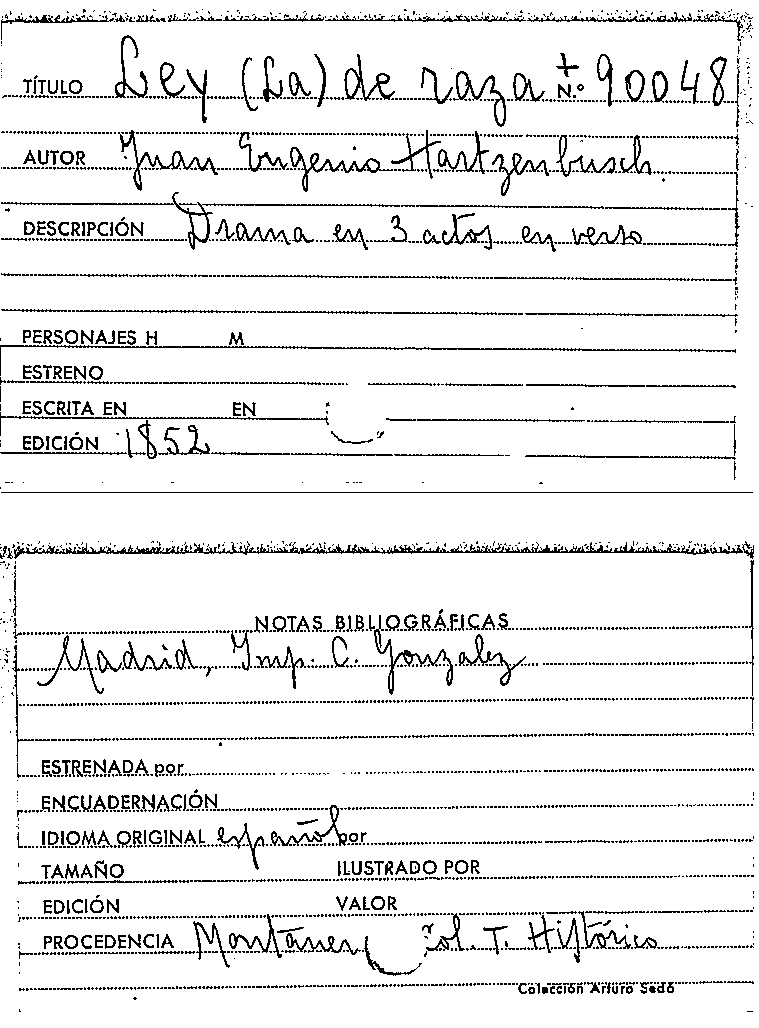 TÍTULO Ley (La) de raza + N.º 90048
AUTOR Juan Eugenio Hartzenbusch
DESCRIPCIÓN Drama en 3 actos en verso
PERSONAJES H M
ESTRENO
ESCRITA EN EN
EDICIÓN 1852
NOTAS BIBLIOGRÁFICAS
Madrid, Imp. C. Gonzalez
ESTRENADA por
ENCUADERNACIÓN
IDIOMA ORIGINAL español por
TAMAÑO ILUSTRADO POR
EDICIÓN VALOR
PROCEDENCIA Montaner Col. T. Histórico
Colección Arturo Sedó